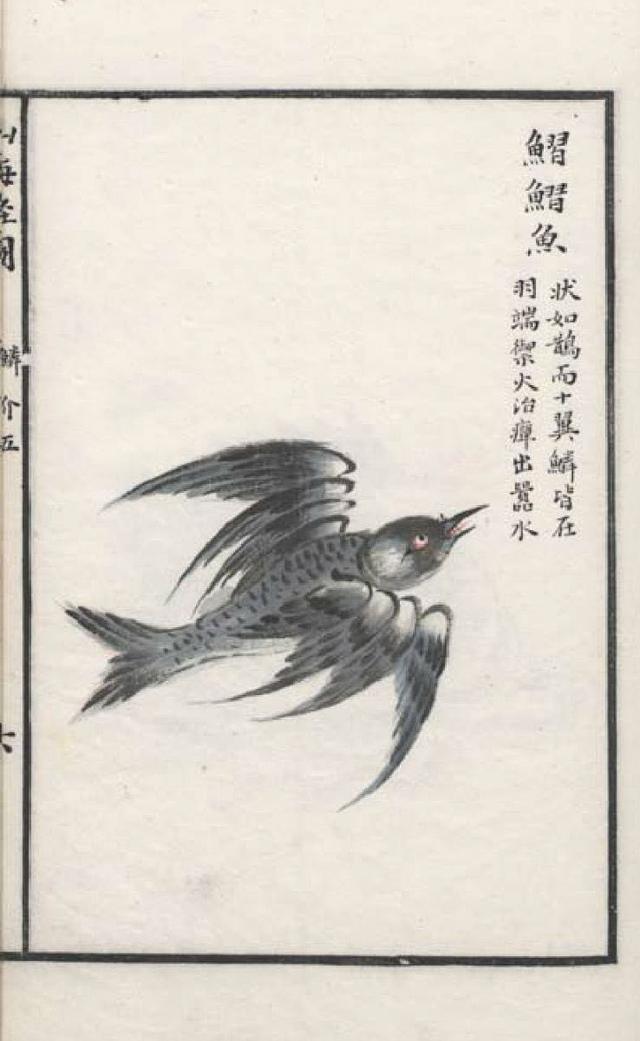 鰼鰼魚
状如鵲而十翼鱗皆在
羽端禦火治癉出囂水
山海經圖
鱗介五
六